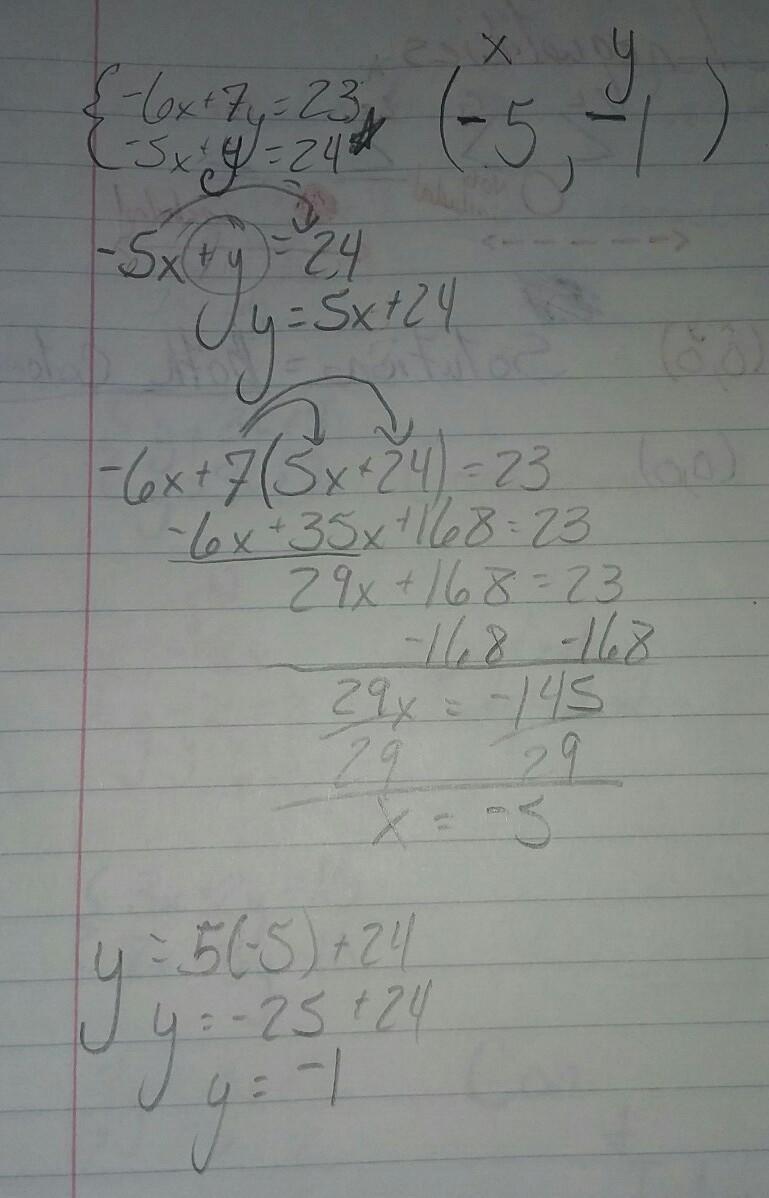 x y
{-6x+7y=23
{-5x+y=24*
(-5, -1)
-5x+y=24
y=5x+24
-6x+7(5x+24)=23
-6x+35x+168=23
29x+168=23
-168 -168
29x = -145
29 29
x = -5
y=5(-5)+24
y=-25+24
y=-1